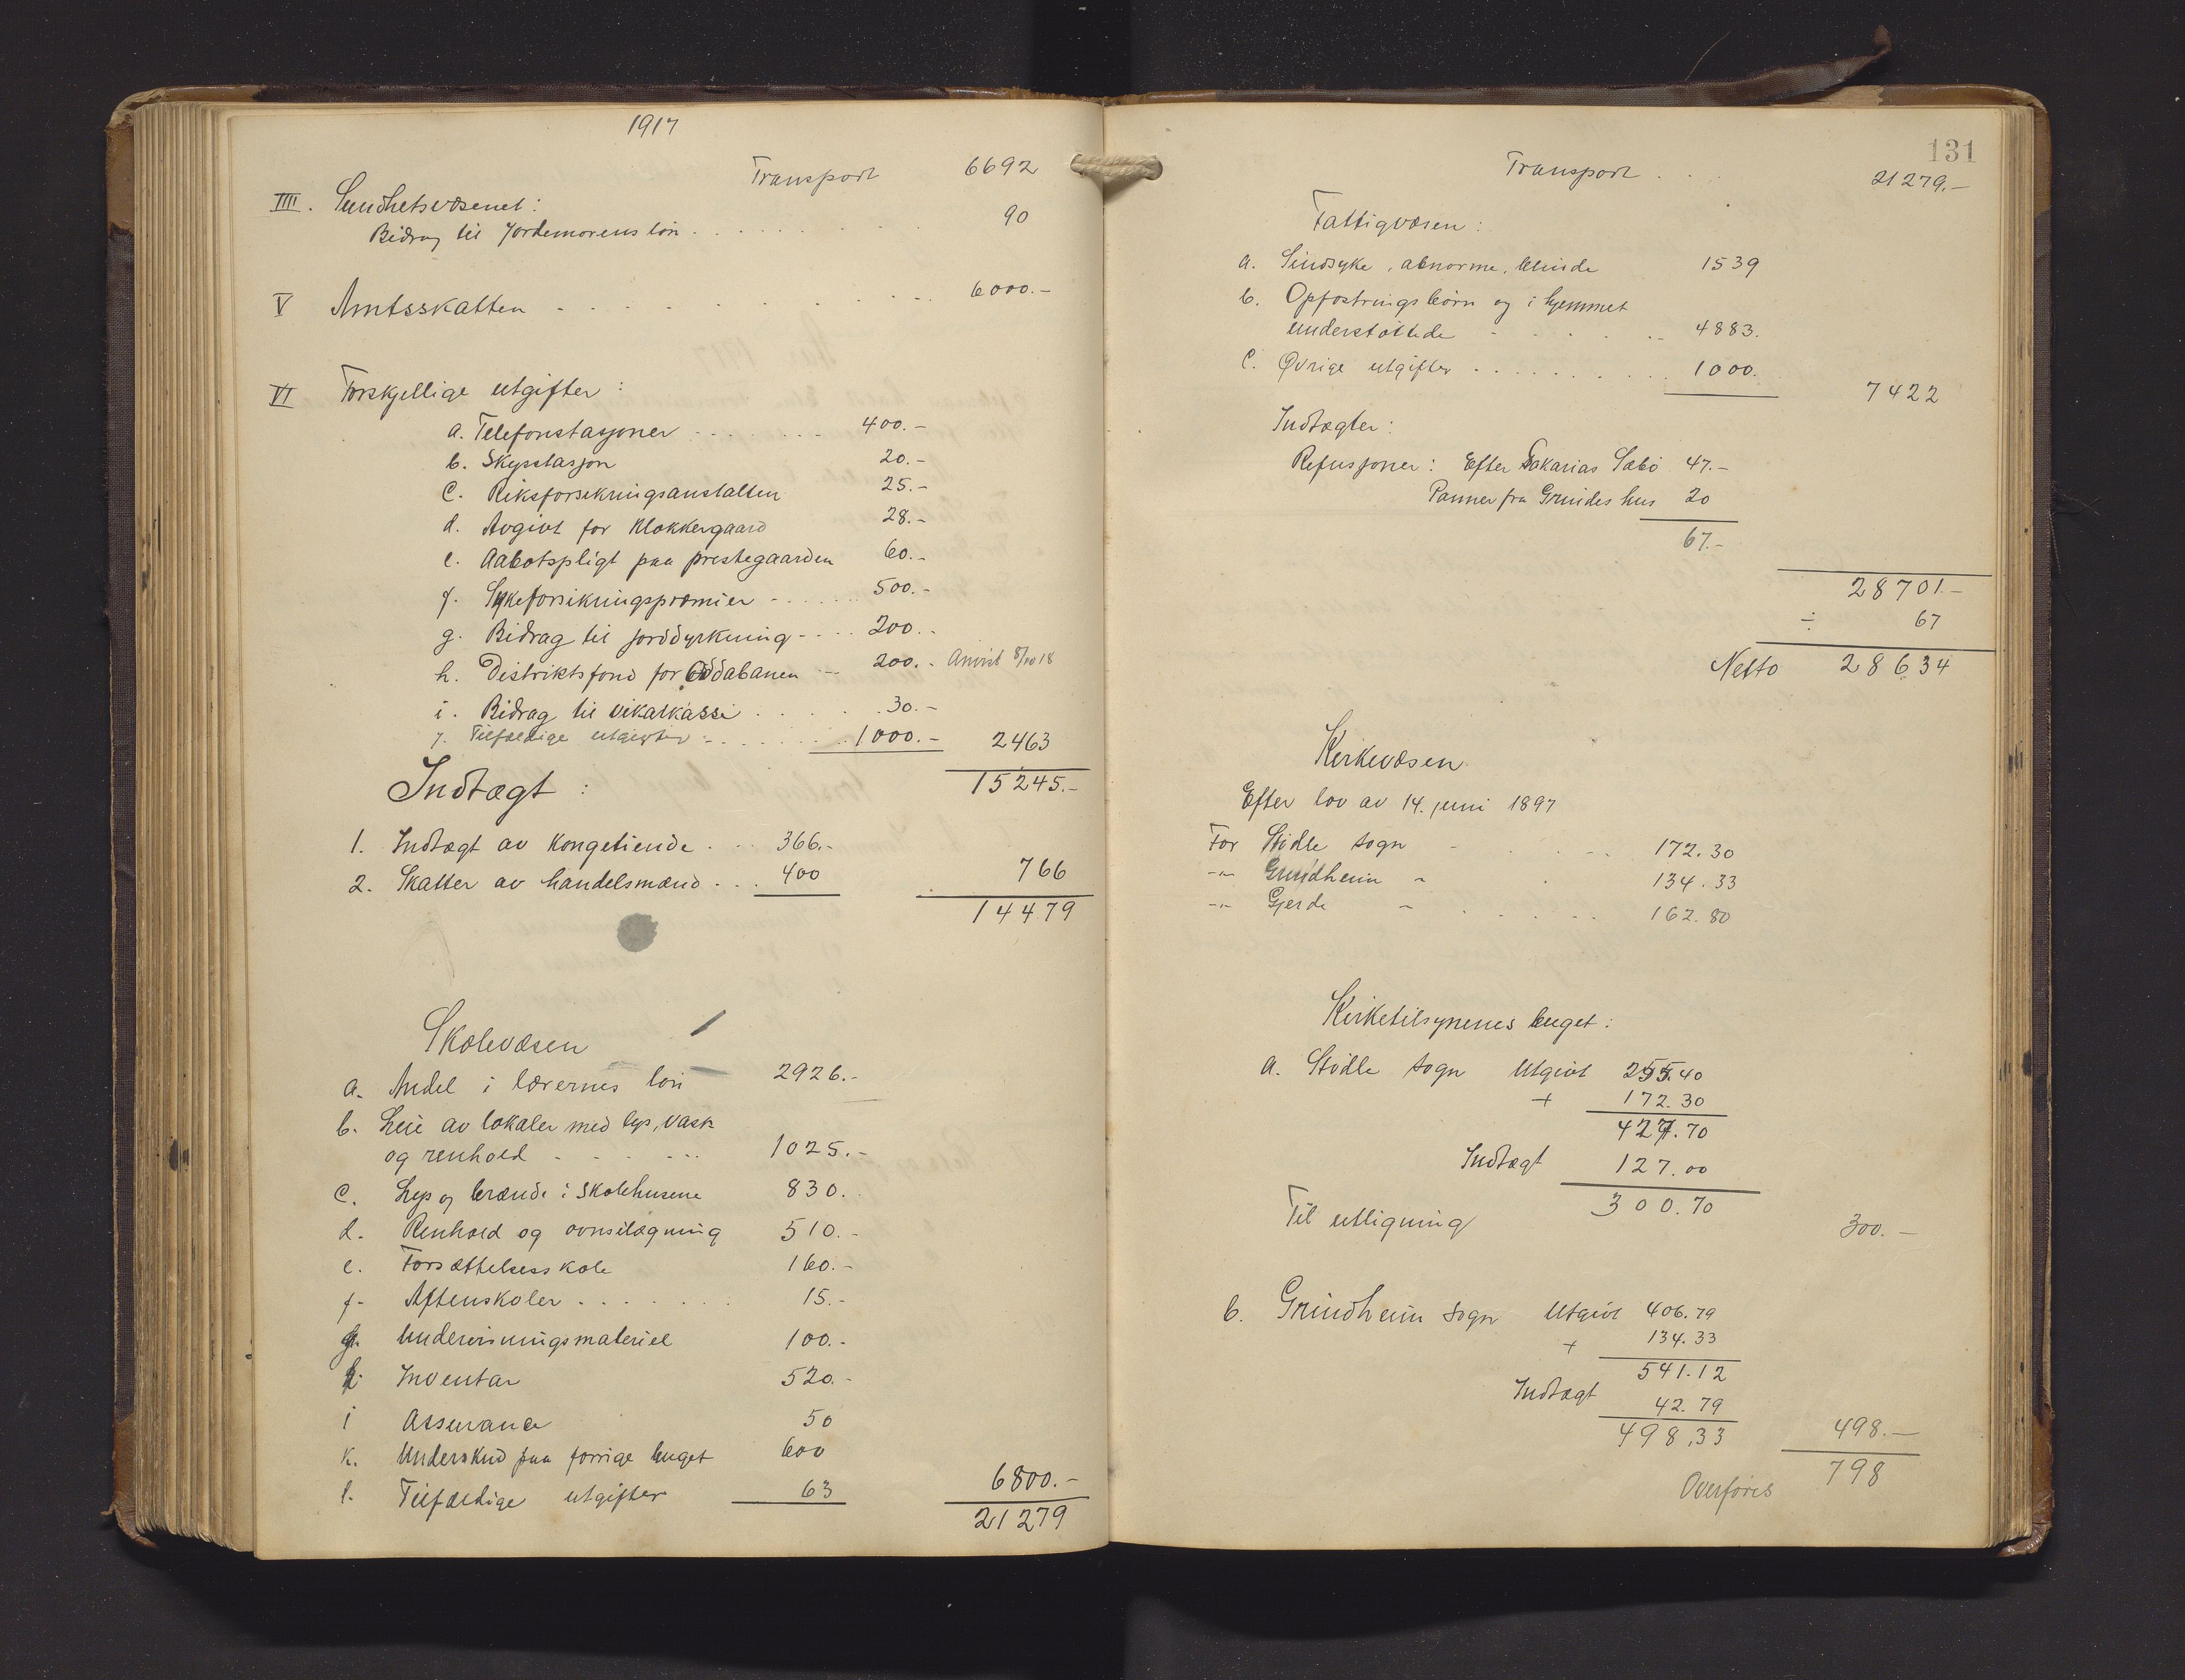 1917
Transport 6692
IIII. Sundhetsvæsenet:
Bidrag til Jordemorens løn . . . . . . . . 90
V Amtsskatten - . . . . . . . . . 6000.-
VI Forskjellige utgifter:
a. Telefonstasjoner - . . . . . . 400.-
b. Skysstasjon 20.-
c. Riksforsikringsanstalten 25.-
d. Avgivt for Klokkergaard 28.-
e. Aabotspligt paa prestegaarden 60.-
f. Sykeforsikringspræmier - . . . . 500.-
g. Bidrag til jorddyrkning - . . . 200.-
h. Distriktsfond for Oddabanen - 200.- Anvist 8/10 18
i. Bidrag til vikarkasse . . . . . 30.-
j. Tilfældige utgifter - . . . . . . 1000.- 2463
15245.-
Indtægt:
1. Indtægt av Kongetiende . . 366.-
2. Skatter av handelsmænd . . . 400 766
14479
Skolevæsen
a. Andel i lærernes løn 2926.-
b. Leie av lokaler med lys, vask
og renhold - . . . . . . 1025.-
c. Lys og brænde i skolehusene 830.
d. Renhold og ovnsilægning 510.-
e. Forsættelsesskole 160.-
f- Aftenskoler . . . . . . . 15.-
g. Undervisningsmateriel 100.-
h. Inventar 520.-
i Assurance 50
k. Underskud paa forrige buget 600
l. Tilfældige utgifter 63 6800.-
21279
131
Transport . . . 21279,-
Fattigvæsen:
a. Sindsyke, abnorme, blinde 1539
b. Opfostringsbørn og i hjemmet
understøttede - . . . . . 4883.
c. Øvrige utgifter . . . . . . . . . 1000.
7422
Indtægter:
Refusjoner: Efter Sakarias Sæbø 47.-
Panner fra Grindes hus 20
67.-
28701.-
÷ 67
Netto 28634
Kirkevæsen.
Efter lov av 14. juni 1897
For Stødle sogn - . . . . 172.30
-"- Grindheim - . 134.33
-"- Gjerde - . . . . . 162.80
Kirketilsynenes buget:
a. Stødle sogn Utgivt 255.40
+ 172.30
427.70
Indtægt 127.00
300.70
Til utligning 300.-
b. Grindheim sogn Utgivt 406.79
+ 134.33
541.12
Indtægt 42.79
498,33 498.-
Overføres 798